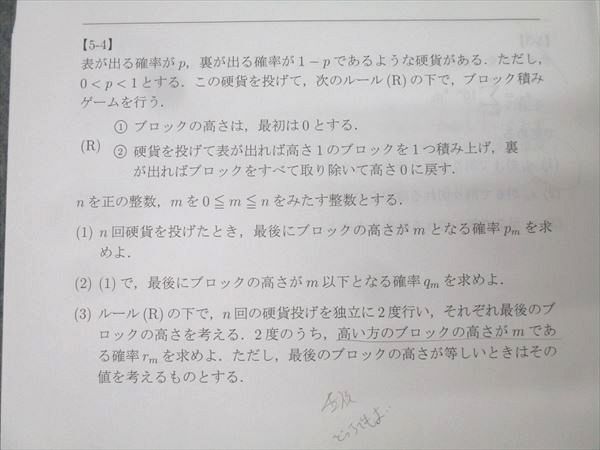 【5-4】
表が出る確率が p，裏が出る確率が 1 − p であるような硬貨がある．ただし，
0 < p < 1 とする．この硬貨を投げて，次のルール (R) の下で，ブロック積み
ゲームを行う．
① ブロックの高さは，最初は 0 とする．
(R) ② 硬貨を投げて表が出れば高さ 1 のブロックを 1 つ積み上げ，裏
が出ればブロックをすべて取り除いて高さ 0 に戻す．
n を正の整数，m を 0 ≦ m ≦ n をみたす整数とする．
(1) n 回硬貨を投げたとき，最後にブロックの高さが m となる確率 pₘ を求
めよ．
(2) (1) で，最後にブロックの高さが m 以下となる確率 qₘ を求めよ．
(3) ルール (R) の下で，n 回の硬貨投げを独立に 2 度行い，それぞれ最後のブ
ロックの高さを考える．2 度のうち，高い方のブロックの高さが m であ
る確率 rₘ を求めよ．ただし，最後のブロックの高さが等しいときはその
値を考えるものとする．